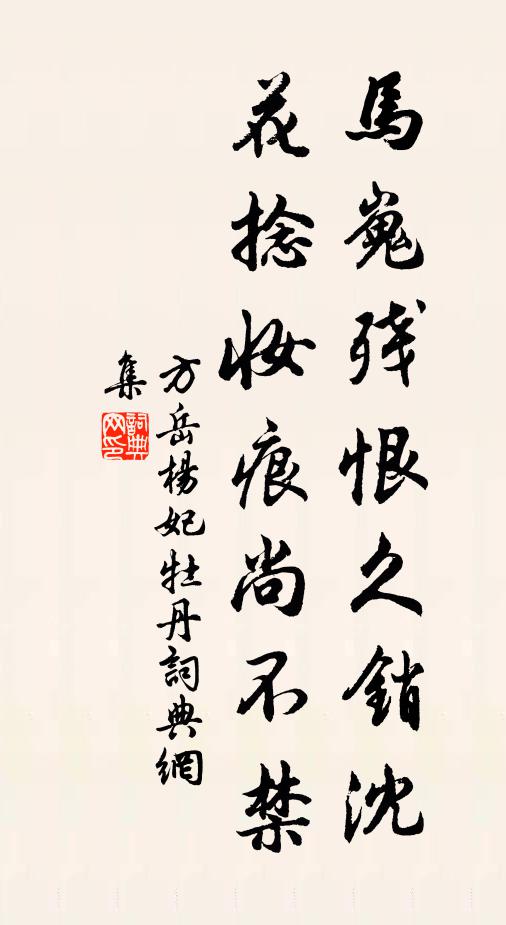 馬嵬残恨久銷沈
花捻妝痕尚不禁
方岳楊妃牡丹詞典網
集
詞典
网印